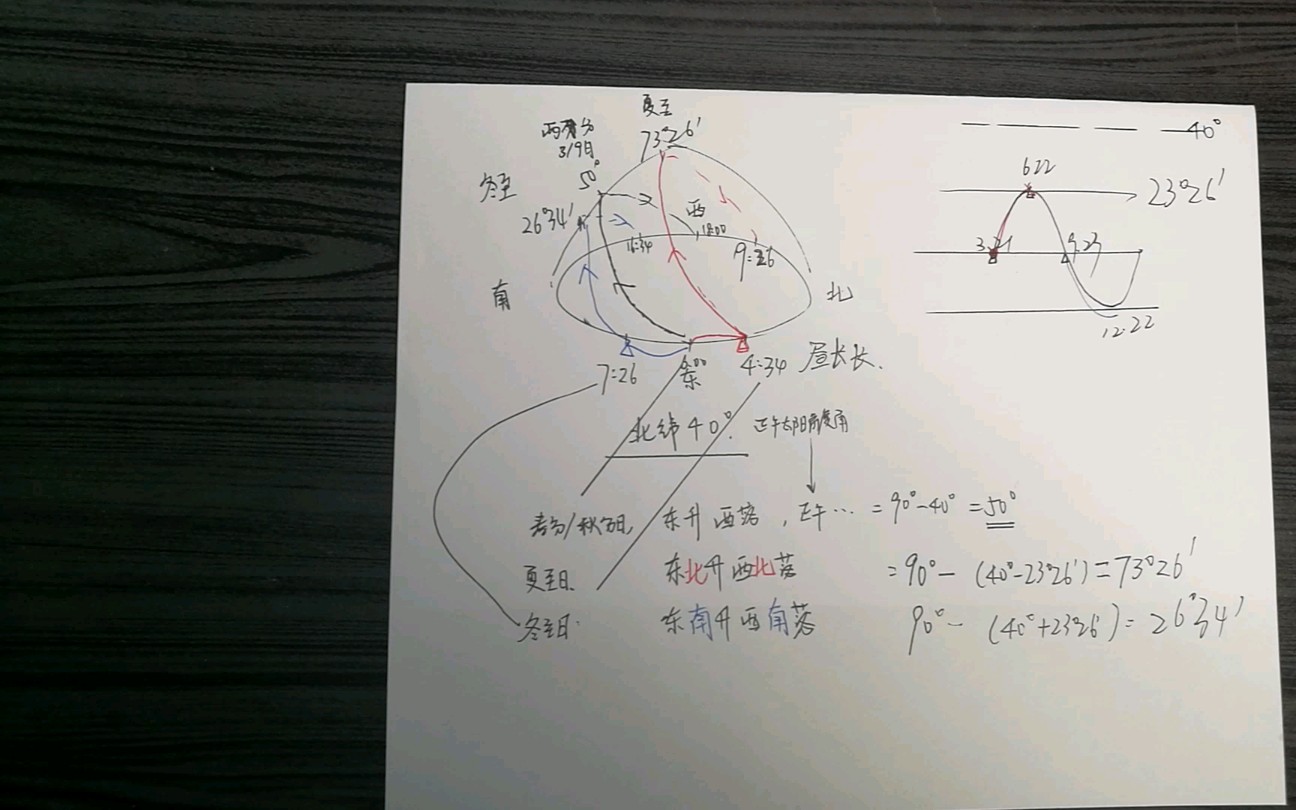 夏至
73°26′
两分
3/9月
50°
冬至
26°34′
西
18:00
16:34
南
北
7:26
6:00
东
4:34 昼长长.
北纬40°. 正午太阳高度角
春分/秋分日, 东升西落, 正午… = 90°-40° = 50°
夏至日. 东北升西北落 = 90° - (40°-23°26′) = 73°26′
冬至日. 东南升西南落 90° - (40°+23°26′) = 26°34′
40°
6 22
23°26′
3.21
9.23
12.22